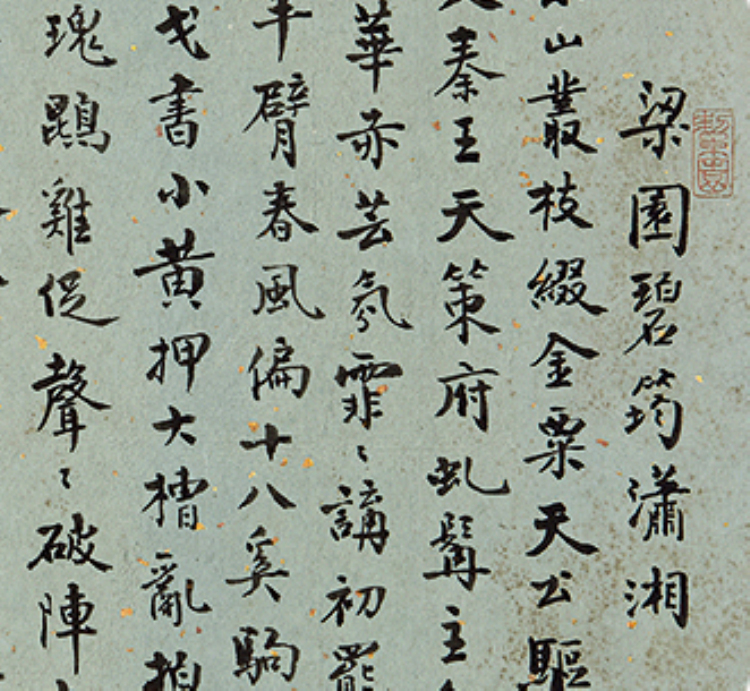 梁園碧筠瀟湘
山叢枝綴金粟天公驅
秦王天策府虬髯主
華赤芸氛霏〻講初罷
半臂春風偏十八奚騶
戈書小黃押大槽亂拍
瑰鵾雞促聲〻破陣